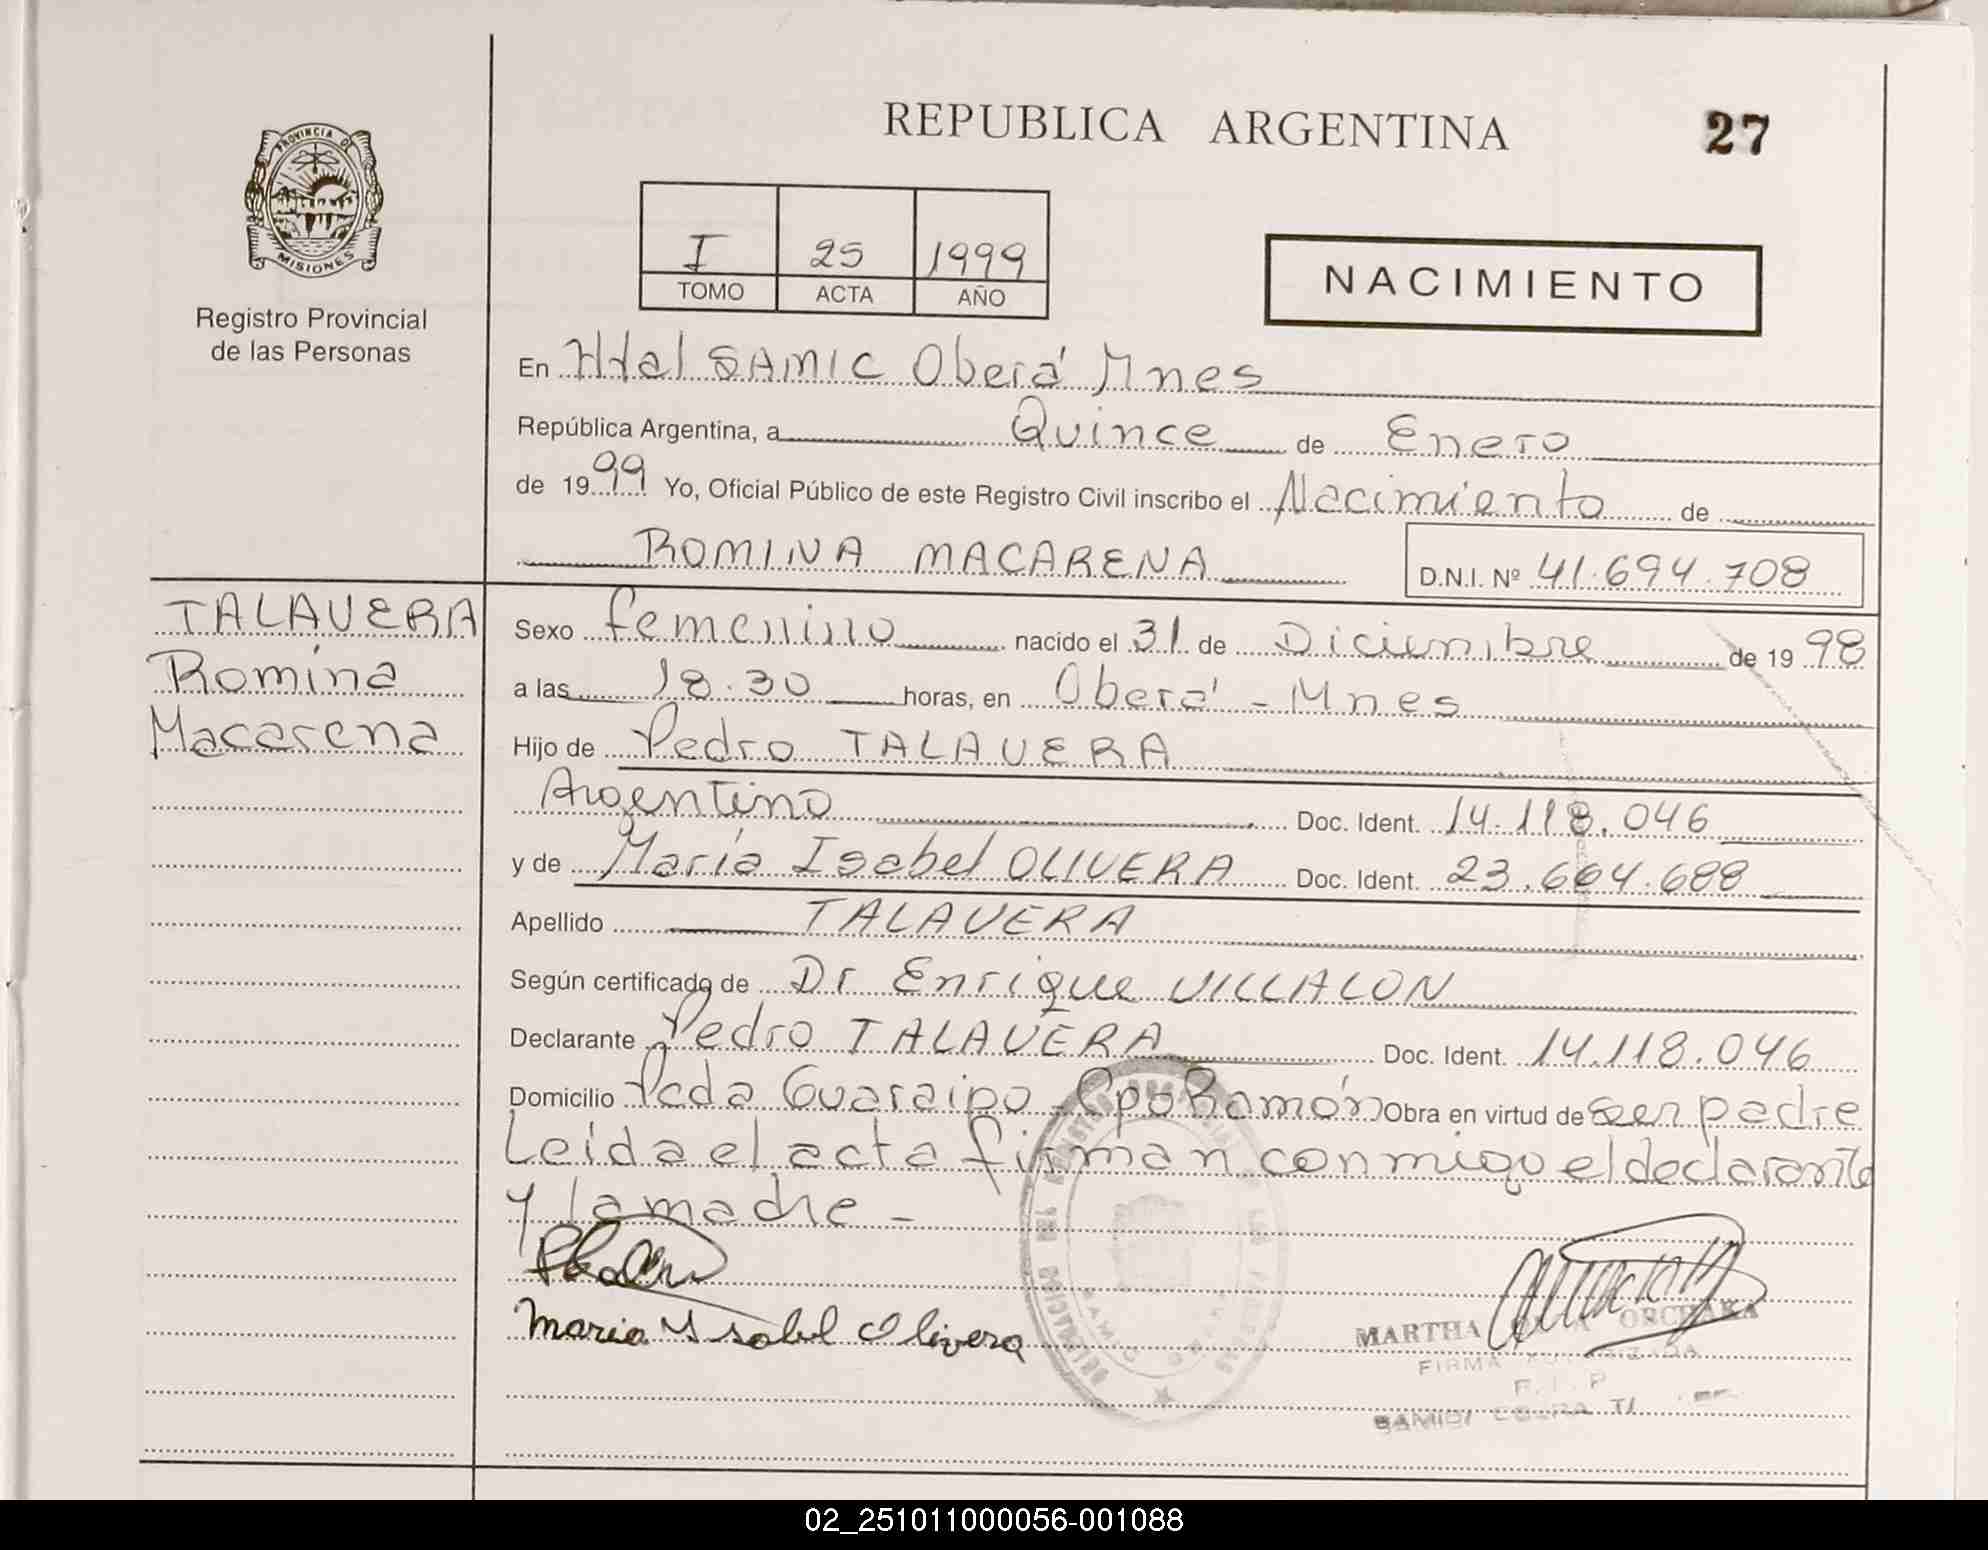 REPUBLICA ARGENTINA
27
PROVINCIA DE
MISIONES
Registro Provincial
de las Personas
I 25 1999
TOMO ACTA AÑO
NACIMIENTO
En Htal SAMIC Oberá Mnes
República Argentina, a Quince de Enero
de 1999 Yo, Oficial Público de este Registro Civil inscribo el Nacimiento de
ROMINA MACARENA
D.N.I. Nº 41.694.708
TALAVERA
Romina
Macarena
Sexo femenino nacido el 31 de Diciembre de 1998
a las 18.30 horas, en Oberá - Mnes
Hijo de Pedro TALAVERA
Argentino Doc. Ident. 14.118.046
y de María Isabel OLIVERA Doc. Ident. 23.664.688
Apellido TALAVERA
Según certificado de Dr Enrique VILLALON
Declarante Pedro TALAVERA Doc. Ident. 14.118.046
Domicilio Pcda Guaraipo - Cpo Ramón Obra en virtud de ser padre
Leida el acta firman conmigo el declarante
y la madre -
Maria Ysabel Olivera
MARTHA
FIRMA AUTORIZADA
02_251011000056-001088